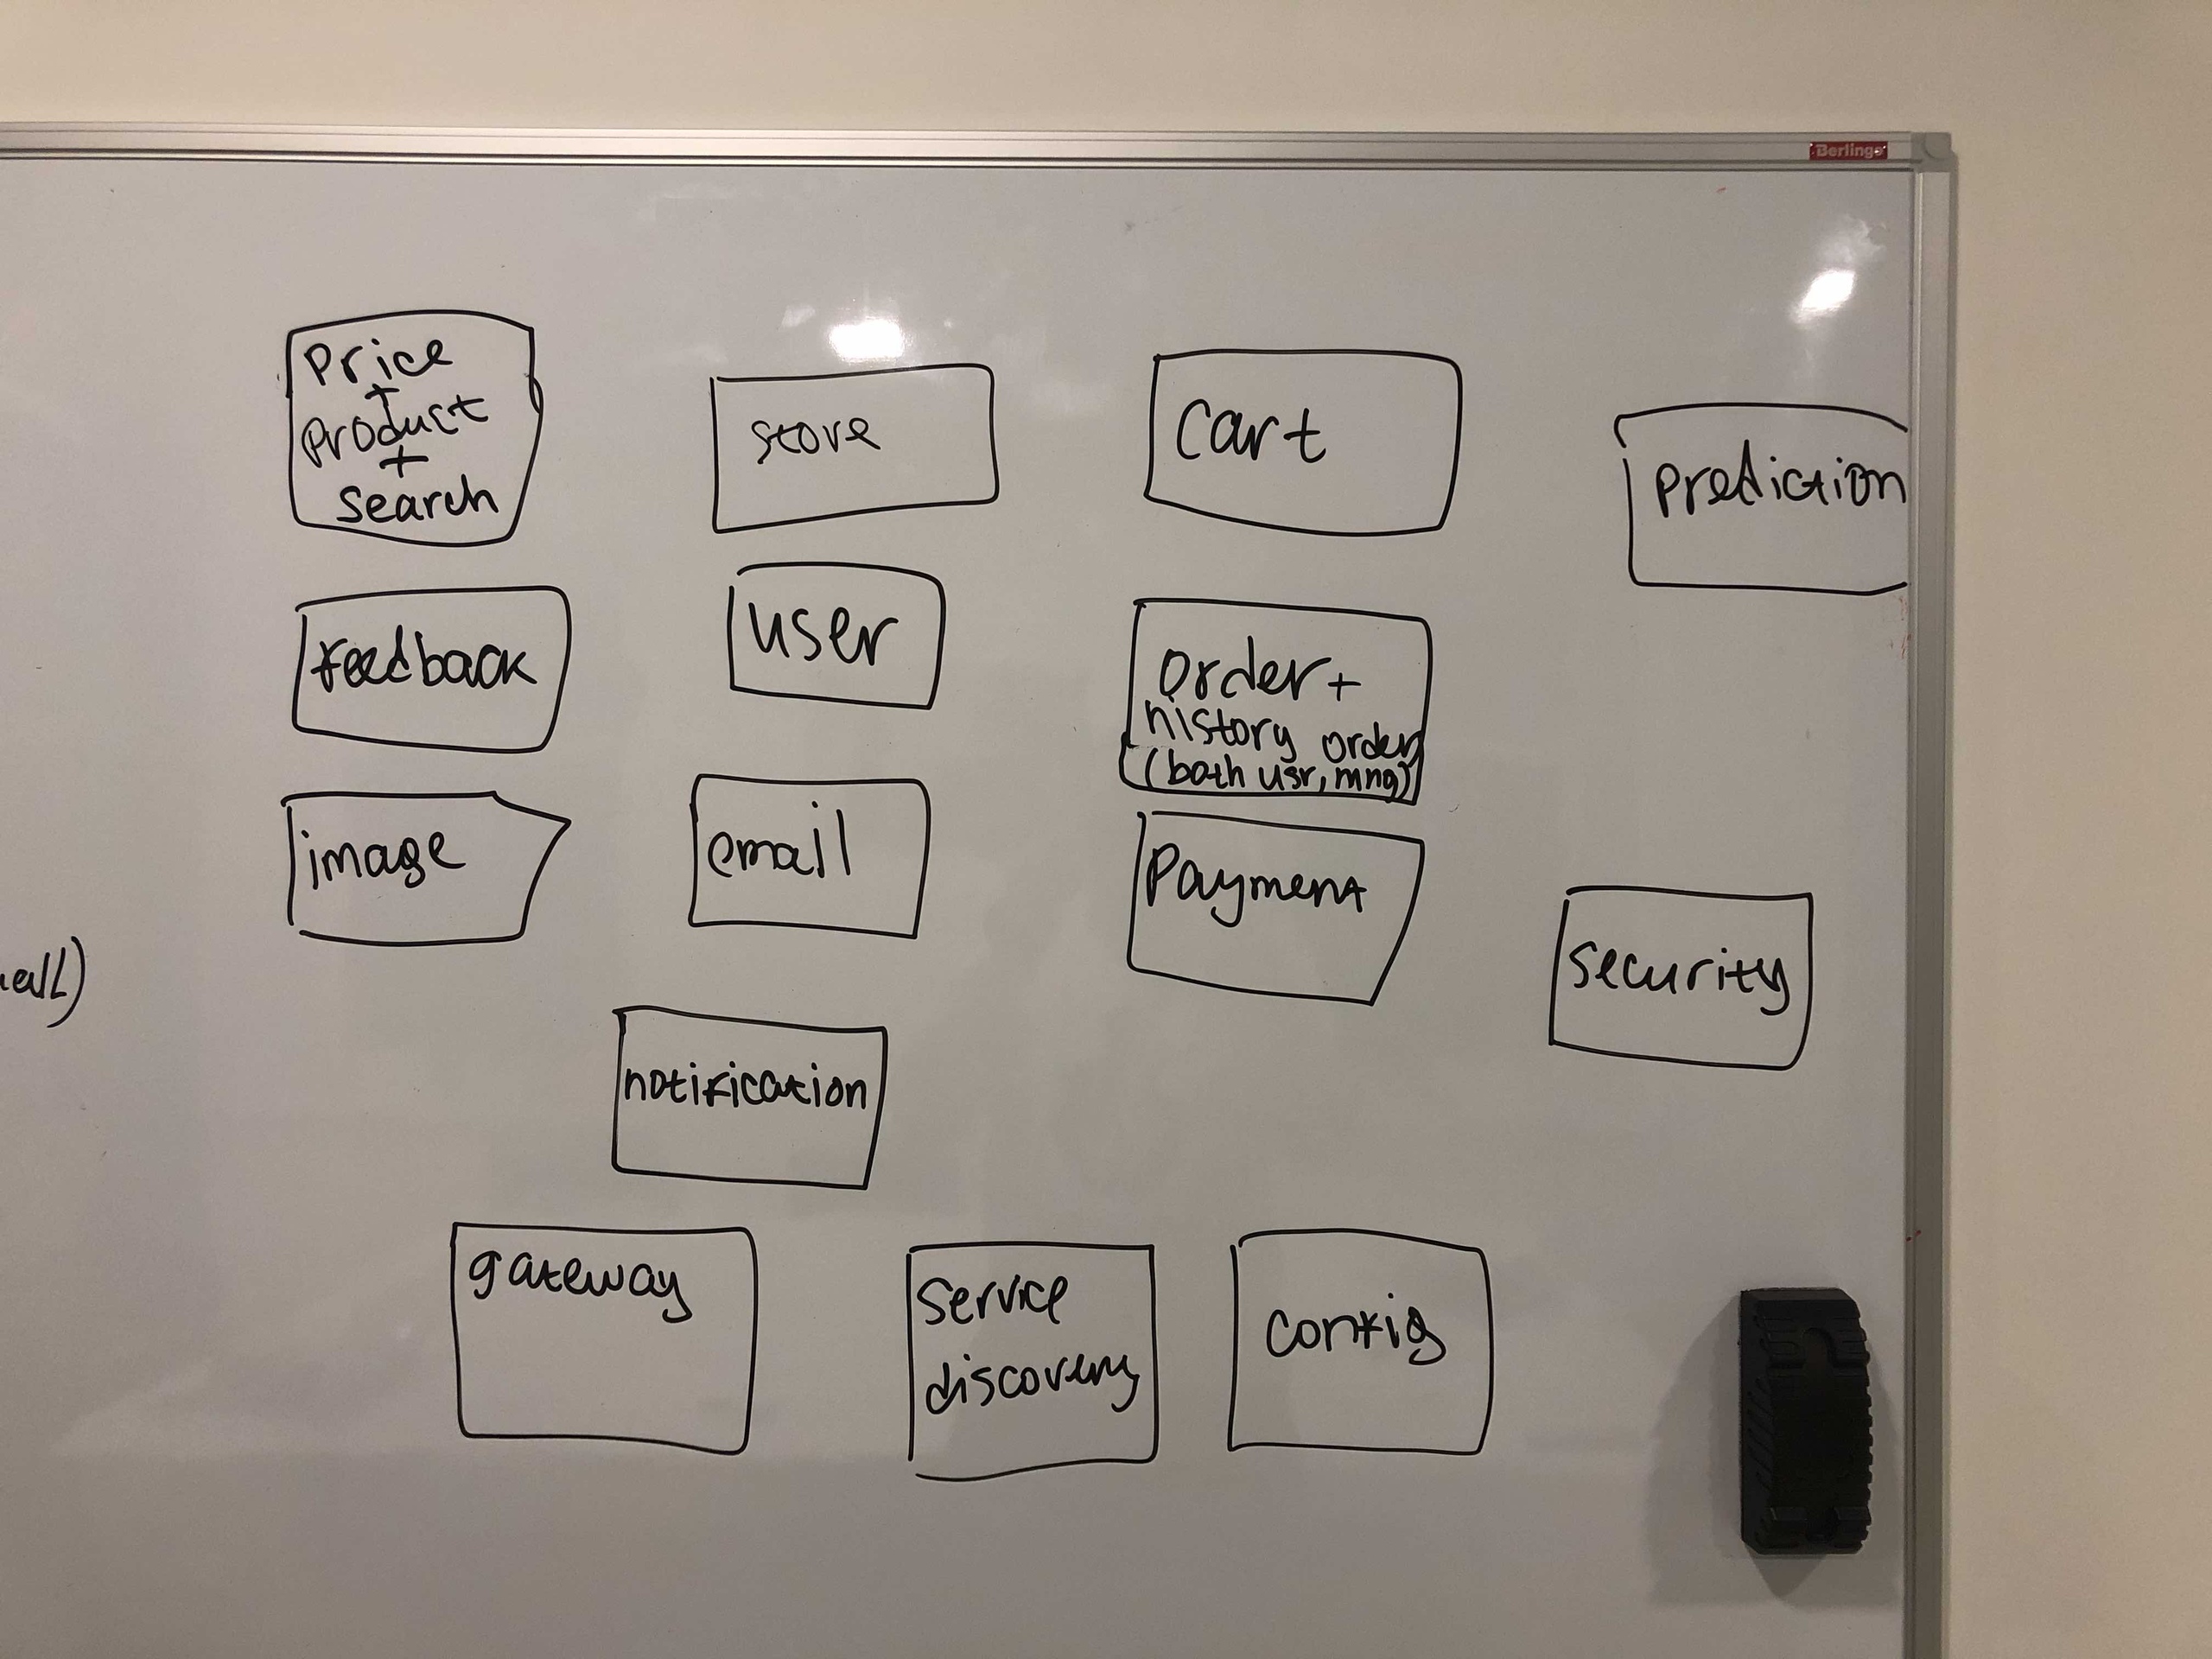 Berlingo
Price
+
Product
+
Search
store
Cart
prediction
feedback
user
order +
history order
(both usr, mng)
image
email
Payment
security
notification
gateway
Service
discovery
config